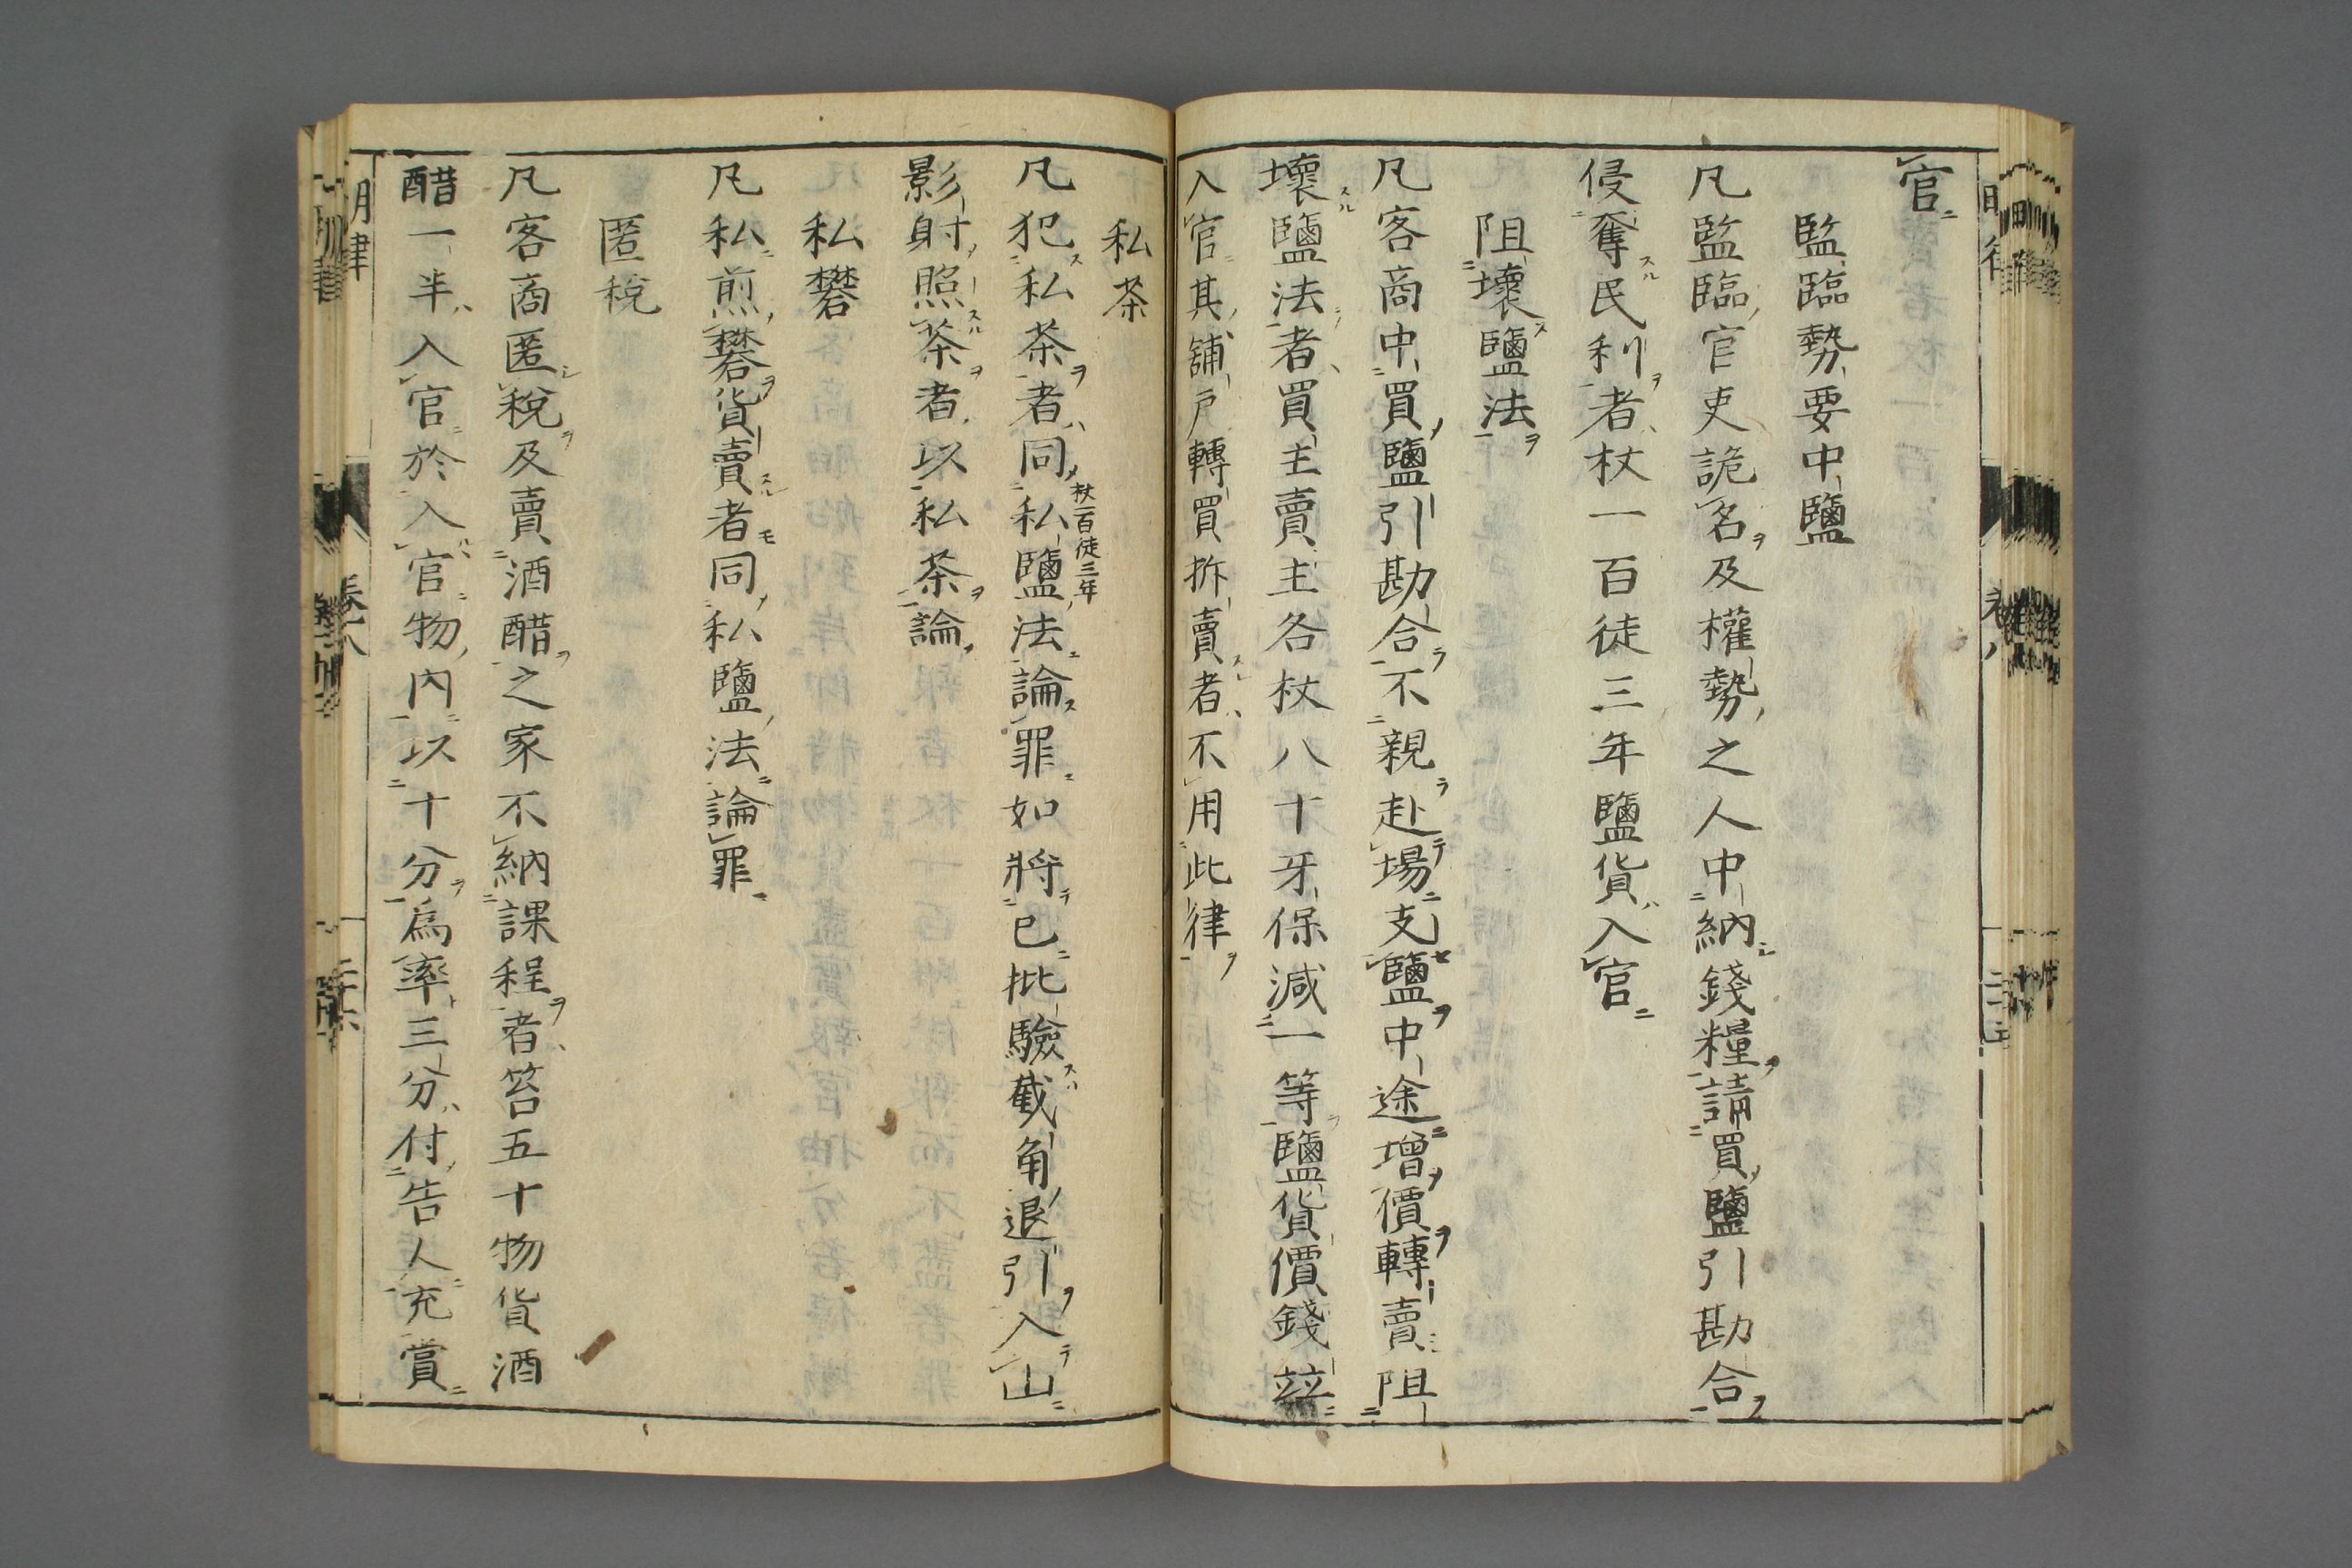 官
監臨勢要中鹽
凡監臨官吏詭名及權勢之人中納錢糧請買鹽引勘合
侵奪民利者杖一百徒三年鹽貨入官
阻壞鹽法
凡客商中買鹽引勘合不親赴場支鹽中途增價轉賣阻
壞鹽法者買主賣主各杖八十牙保減一等鹽貨價錢並
入官其舖戶轉買拆賣者不用此律
私茶
凡犯私茶者同私鹽法論罪如將已批驗截角退引入山
杖一百徒三年
影射照茶者以私茶論
私礬
凡私煎礬貨賣者同私鹽法論罪
匿稅
凡客商匿稅及賣酒醋之家不納課程者笞五十物貨酒
醋一半入官於入官物內以十分爲率三分付告人充賞
明律 卷八 二十六